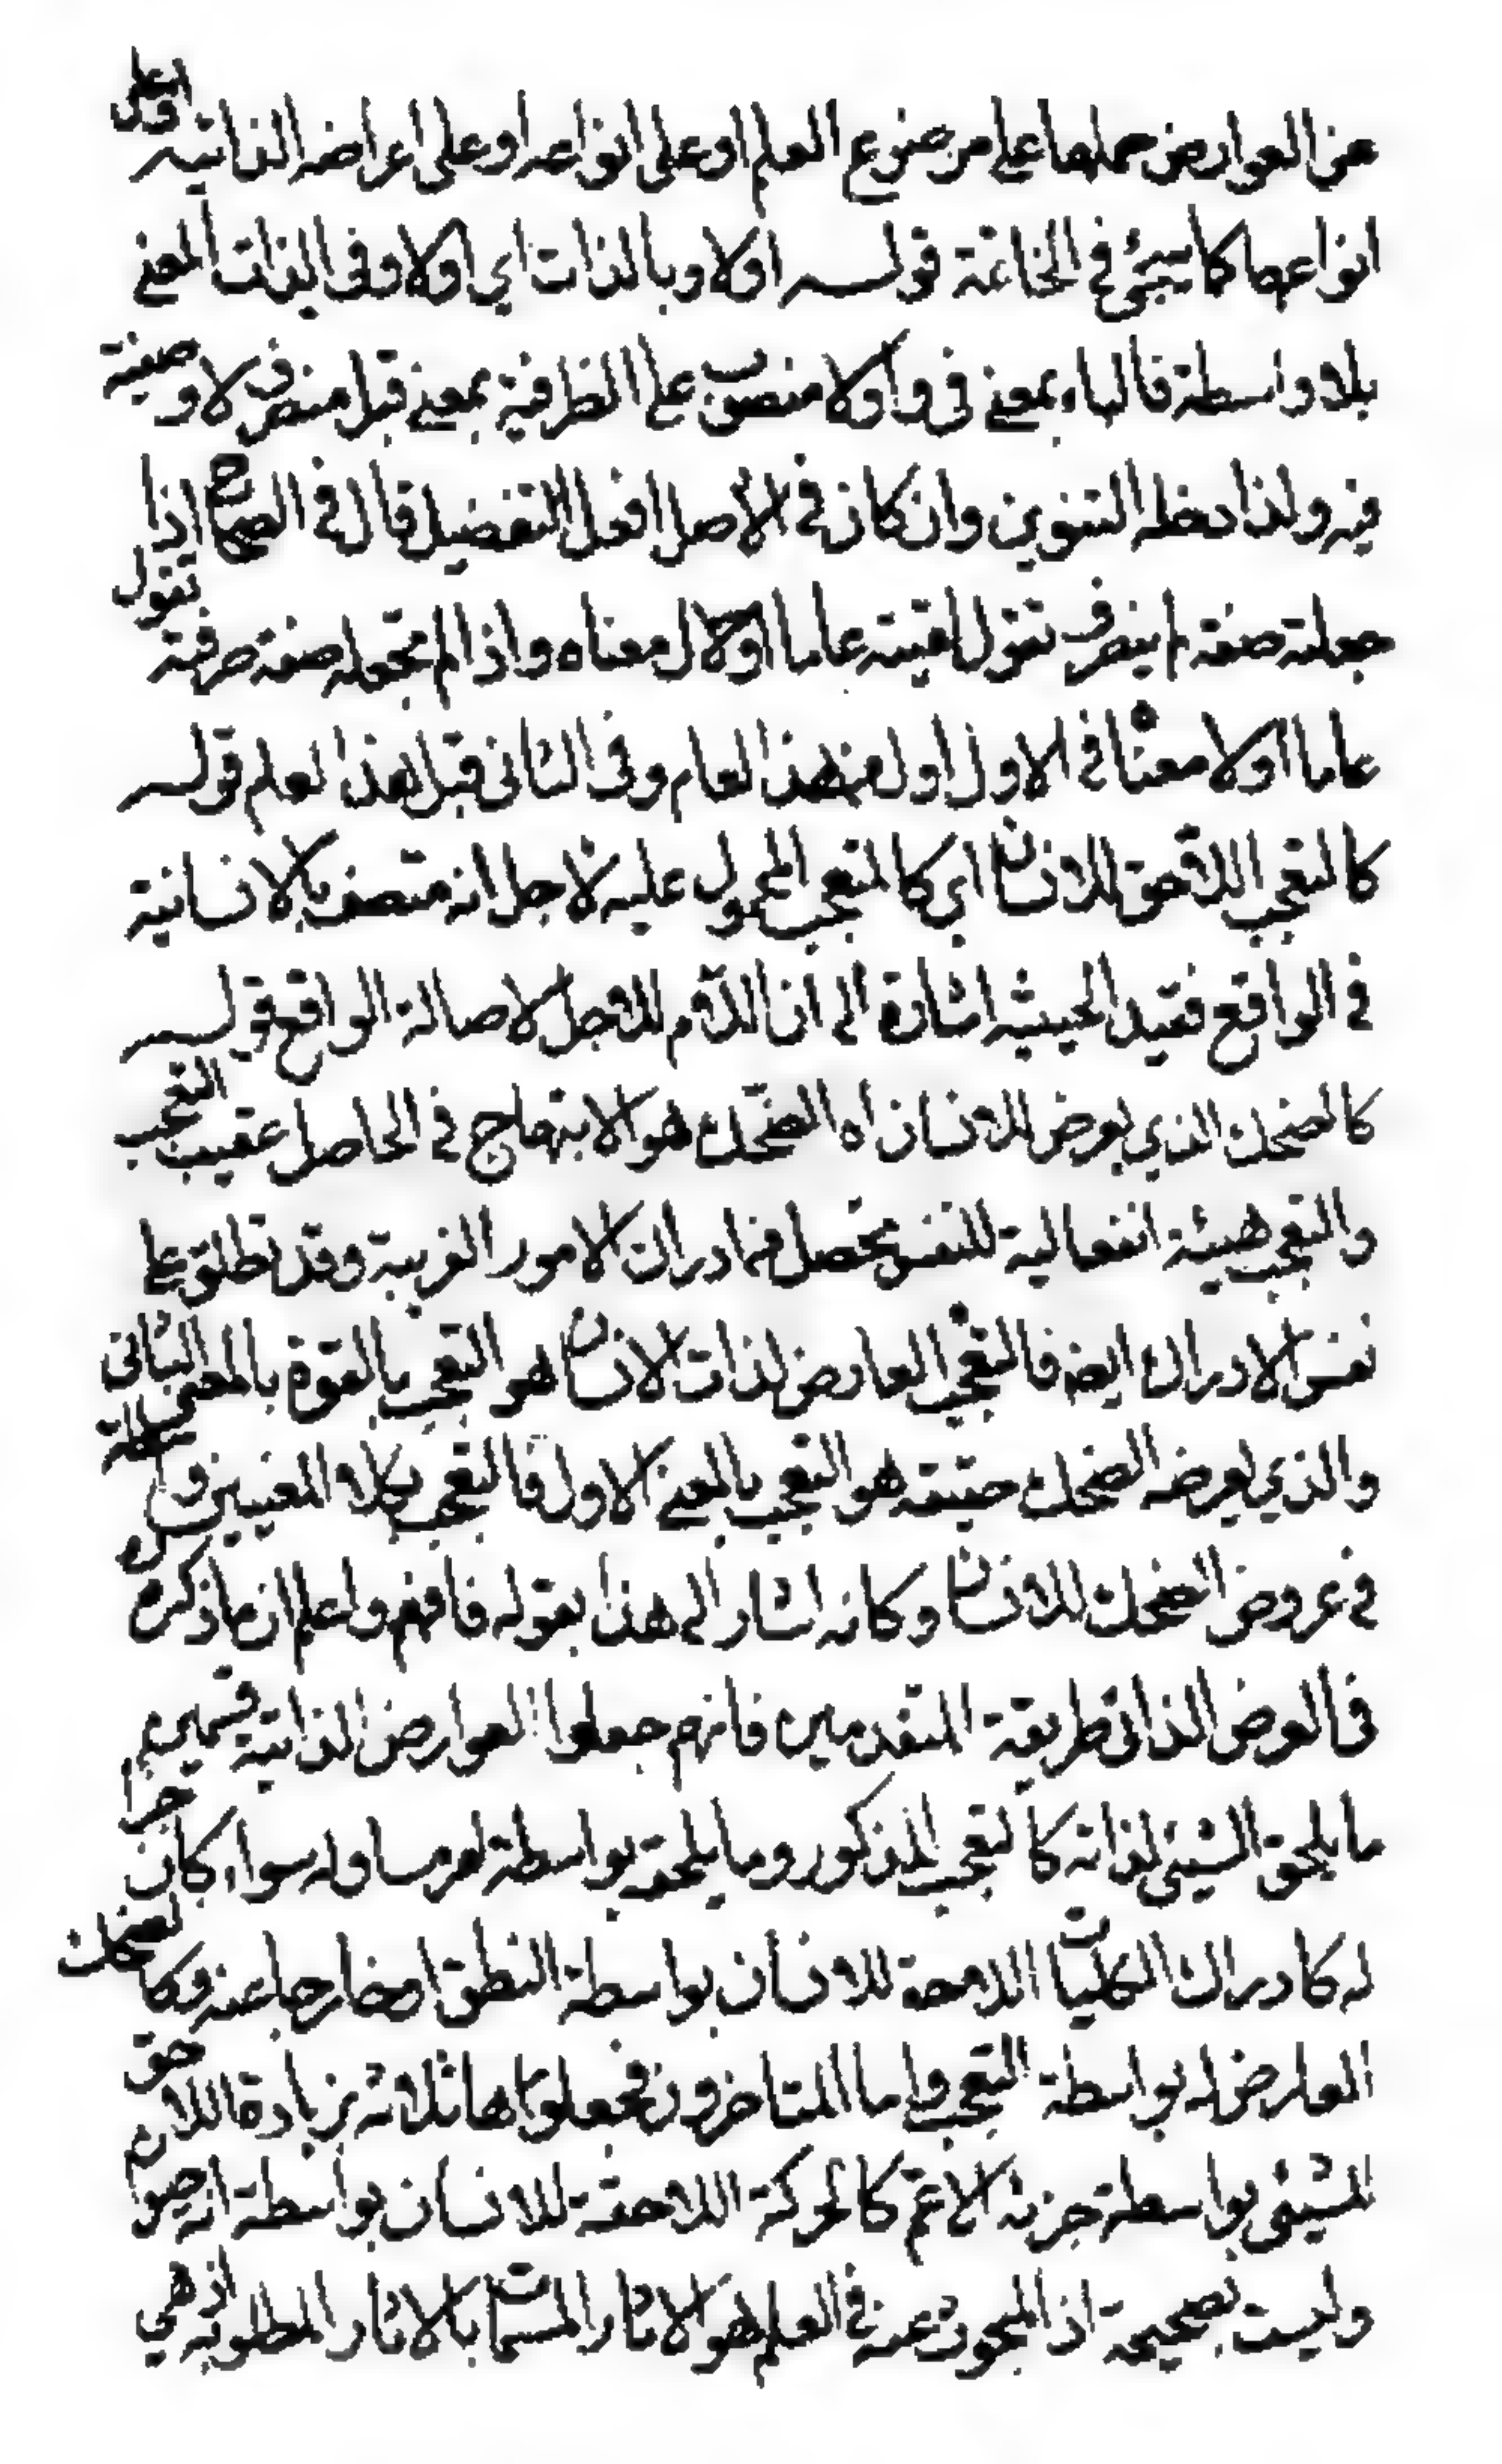 عن العوارض حملها على موضوع العلم او على انواعه او على اعراضه الذاتية او على
انواعها كما سيجئ في الخاتمة قوله اولا وبالذات اي اولا وفي الذات المعنى
بلا واسطة فالباء بمعنى في و اولا منصوب على الظرفية بمعنى قبل منصرف لا وصفية
فيه ولذا دخله التنوين وان كان في الاصل افعل التفضيل قال في الصحاح اذا
جعلته صفة لم ينصرف تقول لقيته عاما اول معناه واذا لم تجعله صفة صرفته تقول
عاما اولا معناه في الاول اول من هذا العام وفي الثاني قبل هذا العلم قوله
كالتعجب اللاحق للانسان اي كالتعجب المحمول عليه لاجل انه متصف بالانسانية
في الواقع فقيد الحيثية اشارة الى ان اللام للاجل لا صالة الواقع قوله
كالضحك الذي يعرض للانسان اه الضحك هو الابتهاج في الحاصل عقيب التعجب
والتعجب هيئة انفعالية للنفس تحصل من ادراك الامور الغريبة وقد تطلق على
نفس الادراك ايضا فالتعجب العارض لذات الانسان هو التعجب بالقوة بالمعنى الثاني
والذي يعرضه الضحك حقيقة هو التعجب بالمعنى الاول فالتعجب بكلا المعنيين واسطة
في عروض الضحك للانسان وكانه اشار الى هذا بقوله فافهم واعلم ان ما ذكره
في العرض الذاتي طريقة المتقدمين فانهم جعلوا العوارض الذاتية قسمين
ما يلحق الشيئ لذاته كالتعجب المذكور وما يلحقه بواسطة امر مساو له سواء كان جزأ
له كادراك الكليات اللاحقة للانسان بواسطة النطق او خارجا عنه وكالضحك
العارض له بواسطة التعجب واما المتاخرون فجعلواها ثلاثة بزيادة اللاحق
للشيئ بواسطة جزئه الاعم كالحركة اللاحقة للانسان بواسطة انه حيوان
وليست بصحيحة اذ المبحوث عنه في العلم هو الاثار المسماة بالاثار المطلوبة اذ هي